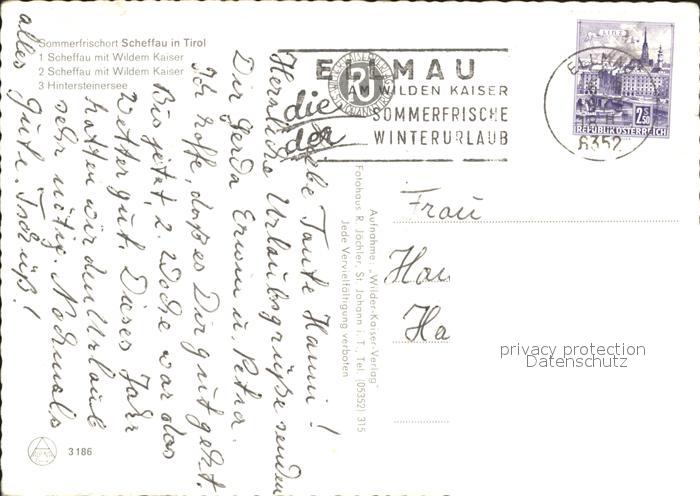 Sommerfrischort Scheffau in Tirol
1 Scheffau mit Wildem Kaiser
2 Scheffau mit Wildem Kaiser
3 Hintersteinersee
ELLMAU
AM WILDEN KAISER
die SOMMERFRISCHE
der WINTERURLAUB
ELLMAU
6352
LINZ
2.50
REPUBLIK ÖSTERREICH
Liebe Tante Hanni!
Herzliche Urlaubsgrüße senden
Dir Gerda Erwin u. Petra.
Ich hoffe, daß es Dir gut geht.
Bis jetzt, 2. Woche war das
Wetter gut. Dieses Jahr
hatten wir den Urlaub
sehr nötig. Nochmals
alles Gute. Tschüß!
Aufnahme: „Wilder-Kaiser-Verlag"
Fotohaus R. Jöchler, St. Johann i. T., Tel. (05352) 315
Jede Vervielfältigung verboten
Frau
Han
Ha
privacy protection
Datenschutz
3186